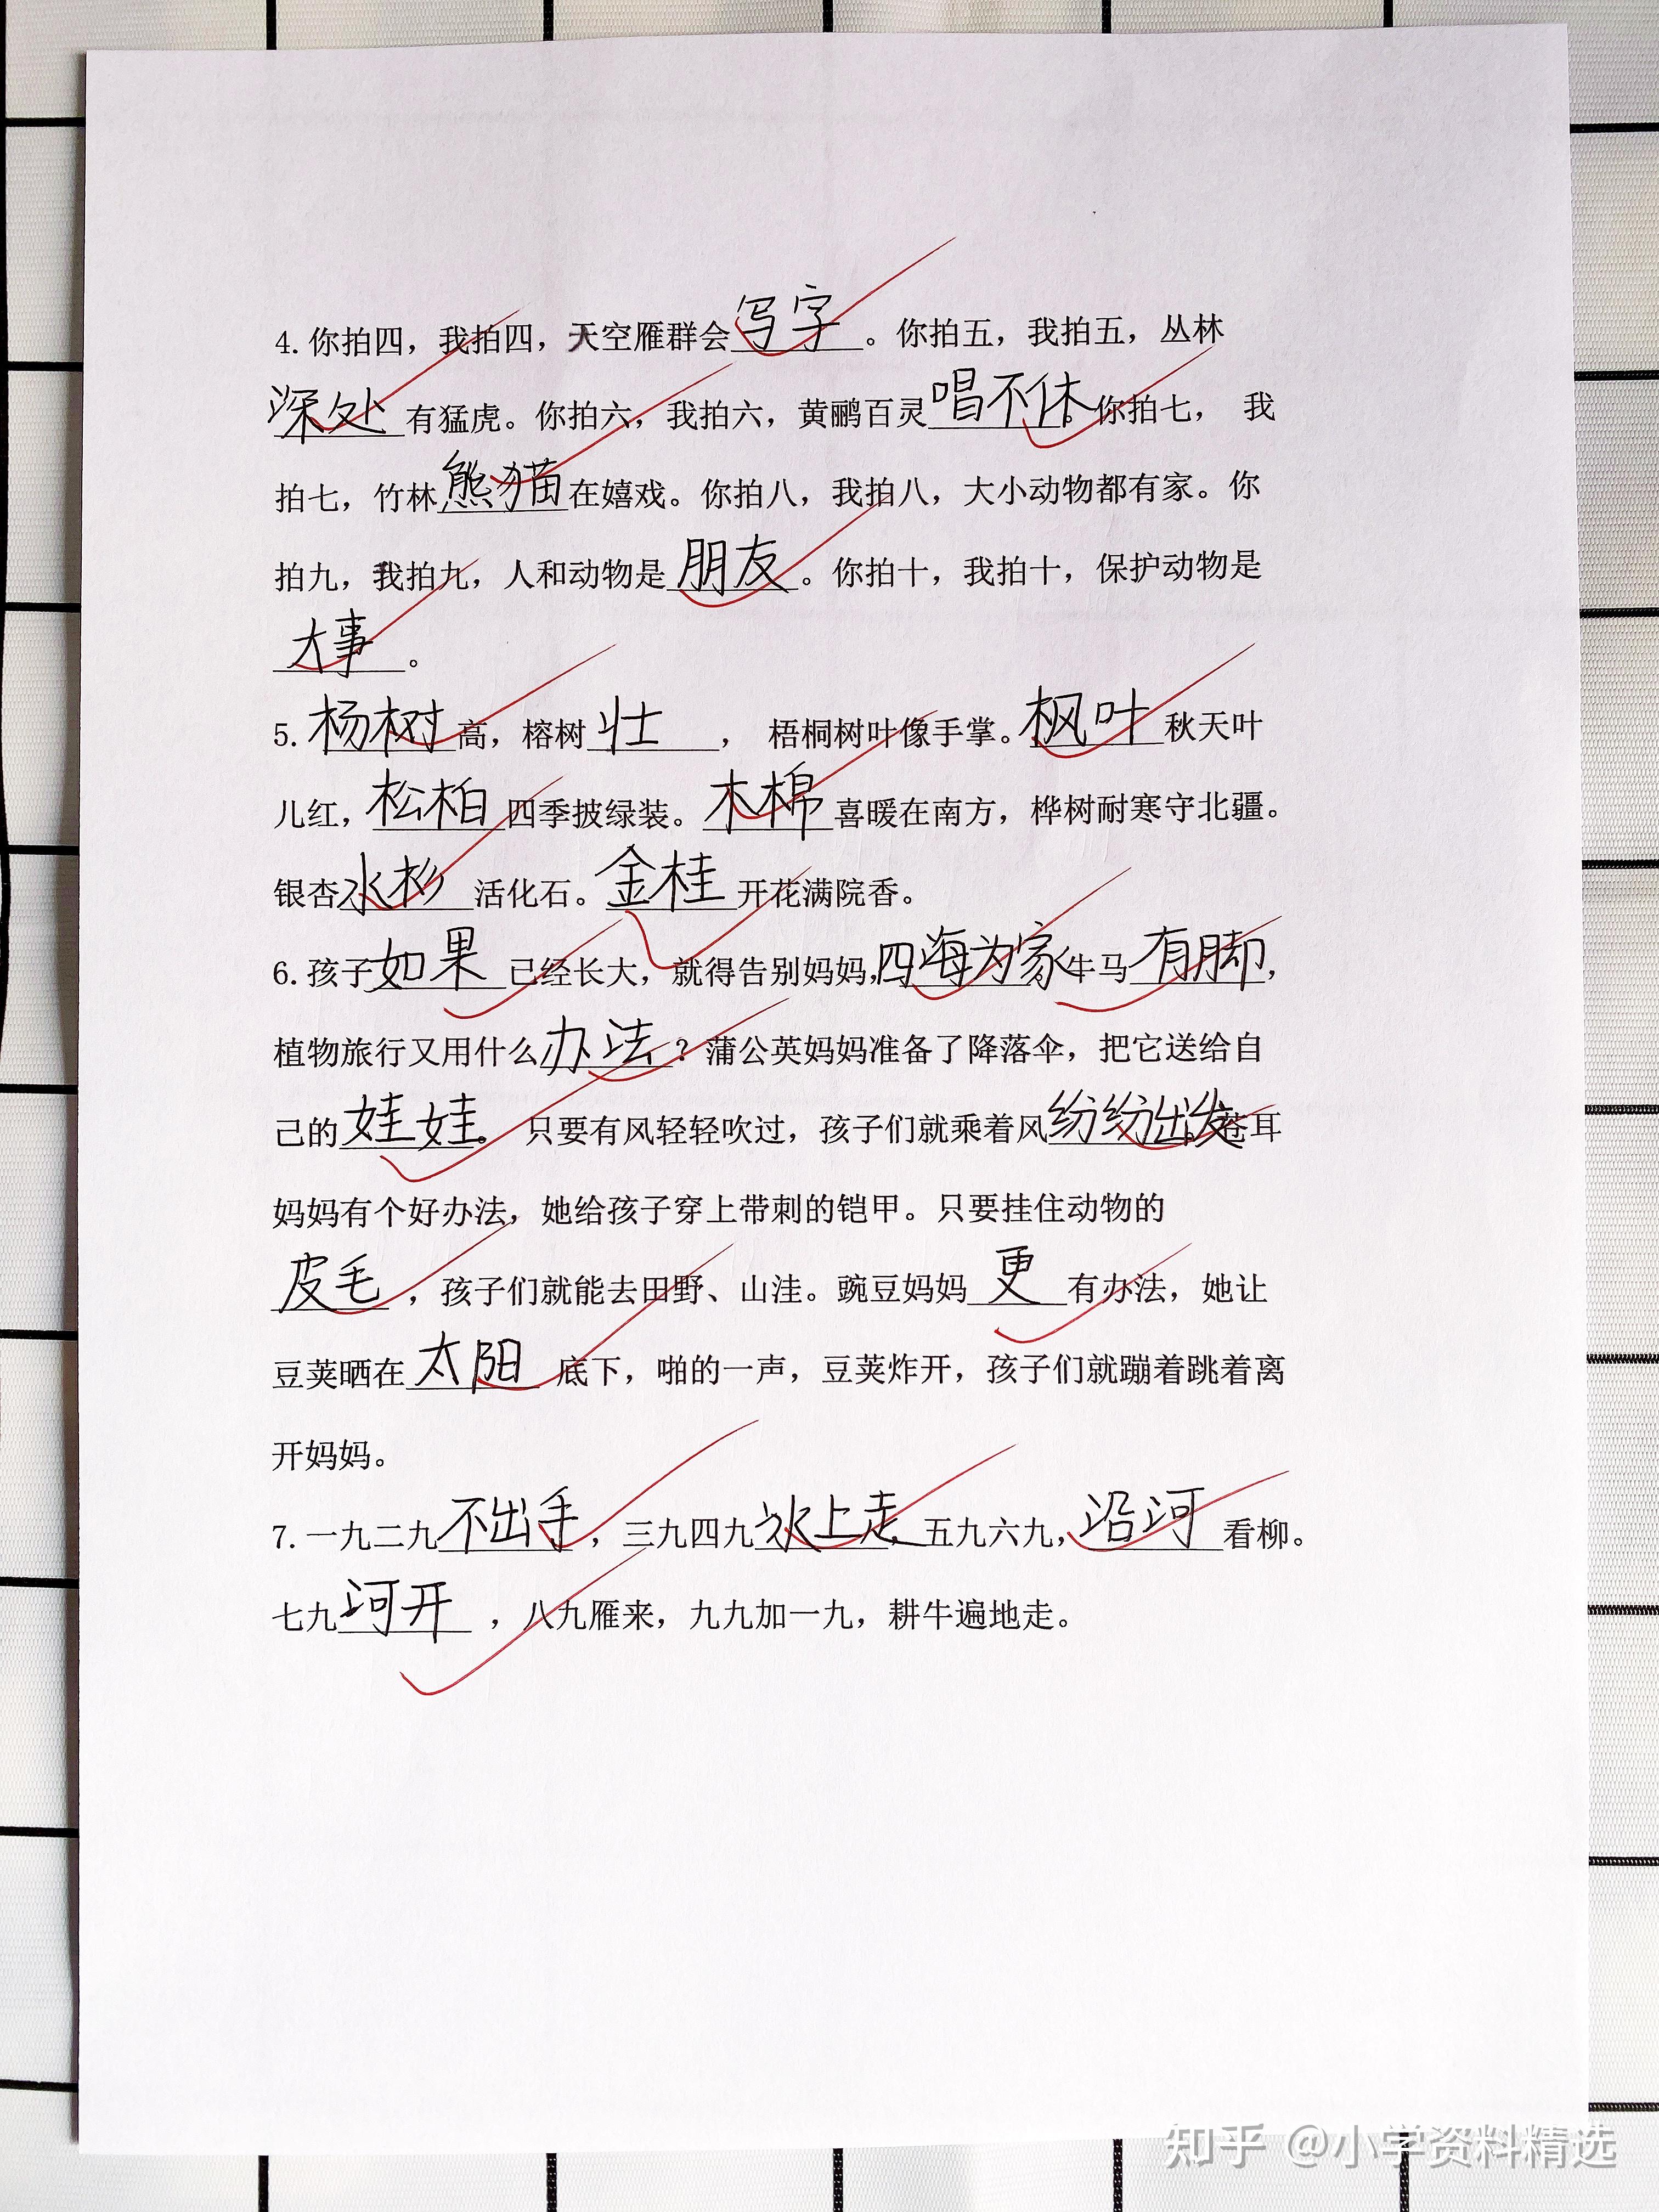 4. 你拍四，我拍四，天空雁群会写字。你拍五，我拍五，丛林
深处有猛虎。你拍六，我拍六，黄鹂百灵唱不休。你拍七， 我
拍七，竹林熊猫在嬉戏。你拍八，我拍八，大小动物都有家。你
拍九，我拍九，人和动物是朋友。你拍十，我拍十，保护动物是
大事。
5. 杨树高，榕树壮， 梧桐树叶像手掌。枫叶秋天叶
儿红，松柏四季披绿装。木棉喜暖在南方，桦树耐寒守北疆。
银杏水杉活化石。金桂开花满院香。
6. 孩子如果已经长大，就得告别妈妈，四海为家。牛马有脚，
植物旅行又用什么办法？蒲公英妈妈准备了降落伞，把它送给自
己的娃娃。 只要有风轻轻吹过，孩子们就乘着风纷纷出发。苍耳
妈妈有个好办法，她给孩子穿上带刺的铠甲。只要挂住动物的
皮毛，孩子们就能去田野、山洼。豌豆妈妈更有办法，她让
豆荚晒在太阳底下，啪的一声，豆荚炸开，孩子们就蹦着跳着离
开妈妈。
7. 一九二九不出手，三九四九冰上走，五九六九，沿河看柳。
七九河开，八九雁来，九九加一九，耕牛遍地走。
知乎 @小学资料精选